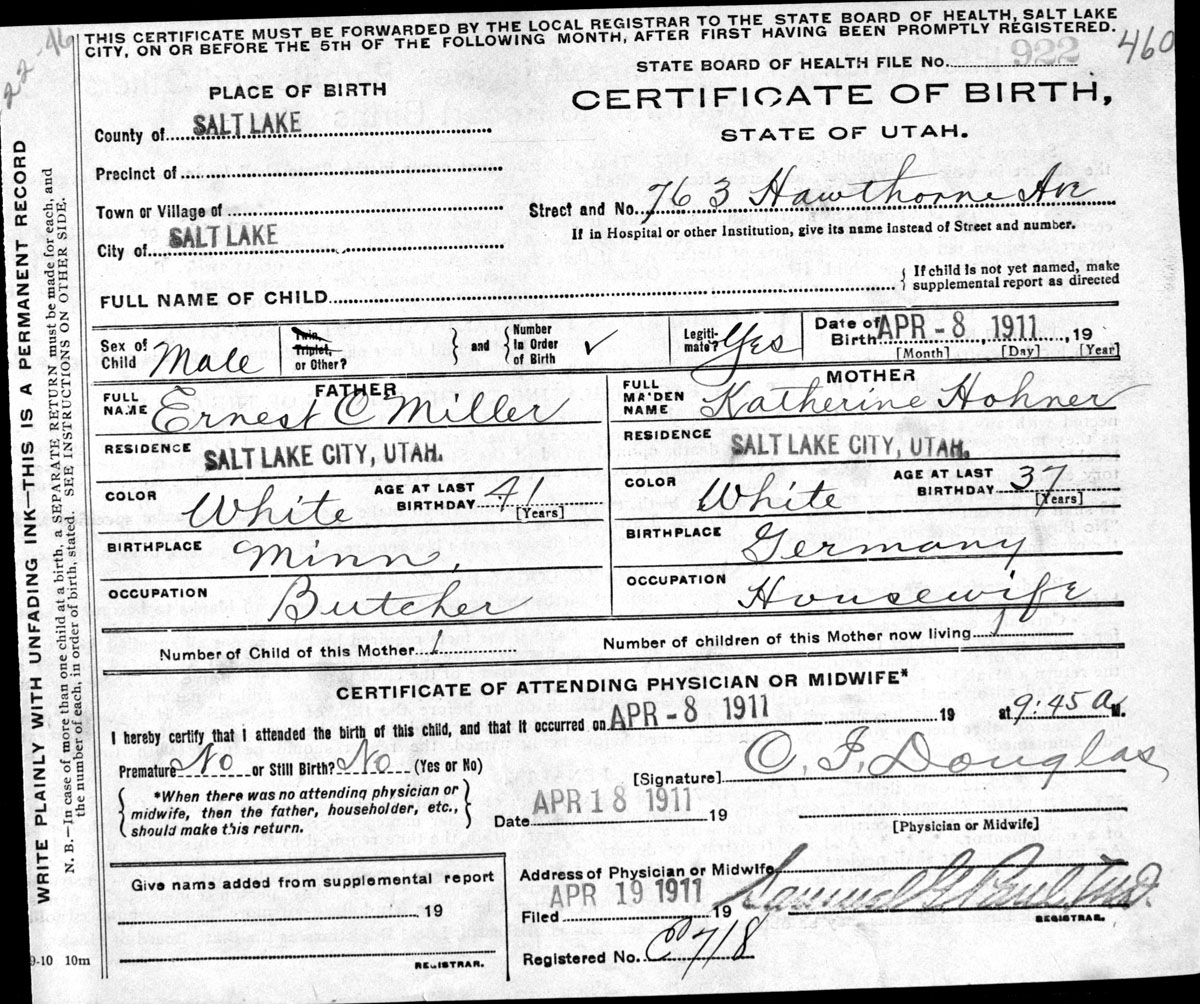 THIS CERTIFICATE MUST BE FORWARDED BY THE LOCAL REGISTRAR TO THE STATE BOARD OF HEALTH, SALT LAKE
CITY, ON OR BEFORE THE 5TH OF THE FOLLOWING MONTH, AFTER FIRST HAVING BEEN PROMPTLY REGISTERED.
460
STATE BOARD OF HEALTH FILE No. 922
PLACE OF BIRTH
CERTIFICATE OF BIRTH,
STATE OF UTAH.
County of SALT LAKE
Precinct of
Town or Village of
Street and No. 763 Hawthorne Ave
If in Hospital or other Institution, give its name Instead of Street and number.
City of SALT LAKE
FULL NAME OF CHILD
If child is not yet named, make
supplemental report as directed
Sex of Child Male
Twin, Triplet, or Other?
and Number In Order of Birth ✓
Legitimate? Yes
Date of Birth APR - 8 1911, 19
[Month] [Day] [Year]
FATHER
FULL NAME Ernest O Miller
RESIDENCE SALT LAKE CITY, UTAH.
COLOR White AGE AT LAST BIRTHDAY 41
[Years]
BIRTHPLACE Minn,
OCCUPATION Butcher
MOTHER
FULL MAIDEN NAME Katherine Hohner
RESIDENCE SALT LAKE CITY, UTAH.
COLOR White AGE AT LAST BIRTHDAY 37
[Years]
BIRTHPLACE Germany
OCCUPATION Housewife
Number of Child of this Mother 1 Number of children of this Mother now living 1
CERTIFICATE OF ATTENDING PHYSICIAN OR MIDWIFE*
I hereby certify that I attended the birth of this child, and that it occurred on APR - 8 1911 19 at 9:45 a M.
Premature No or Still Birth? No (Yes or No)
[Signature] O. J. Douglas
*When there was no attending physician or
midwife, then the father, householder, etc.,
should make this return.
Date APR 18 1911 19
[Physician or Midwife]
Give name added from supplemental report
19
REGISTRAR.
Address of Physician or Midwife
Filed APR 19 1911 19 Samuel G Paul, M.D.
REGISTRAR.
Registered No. C718
WRITE PLAINLY WITH UNFADING INK—THIS IS A PERMANENT RECORD
N. B.—In case of more than one child at a birth, a SEPARATE RETURN must be made for each, and
the number of each, in order of birth, stated. SEE INSTRUCTIONS ON OTHER SIDE.
9-10 10m